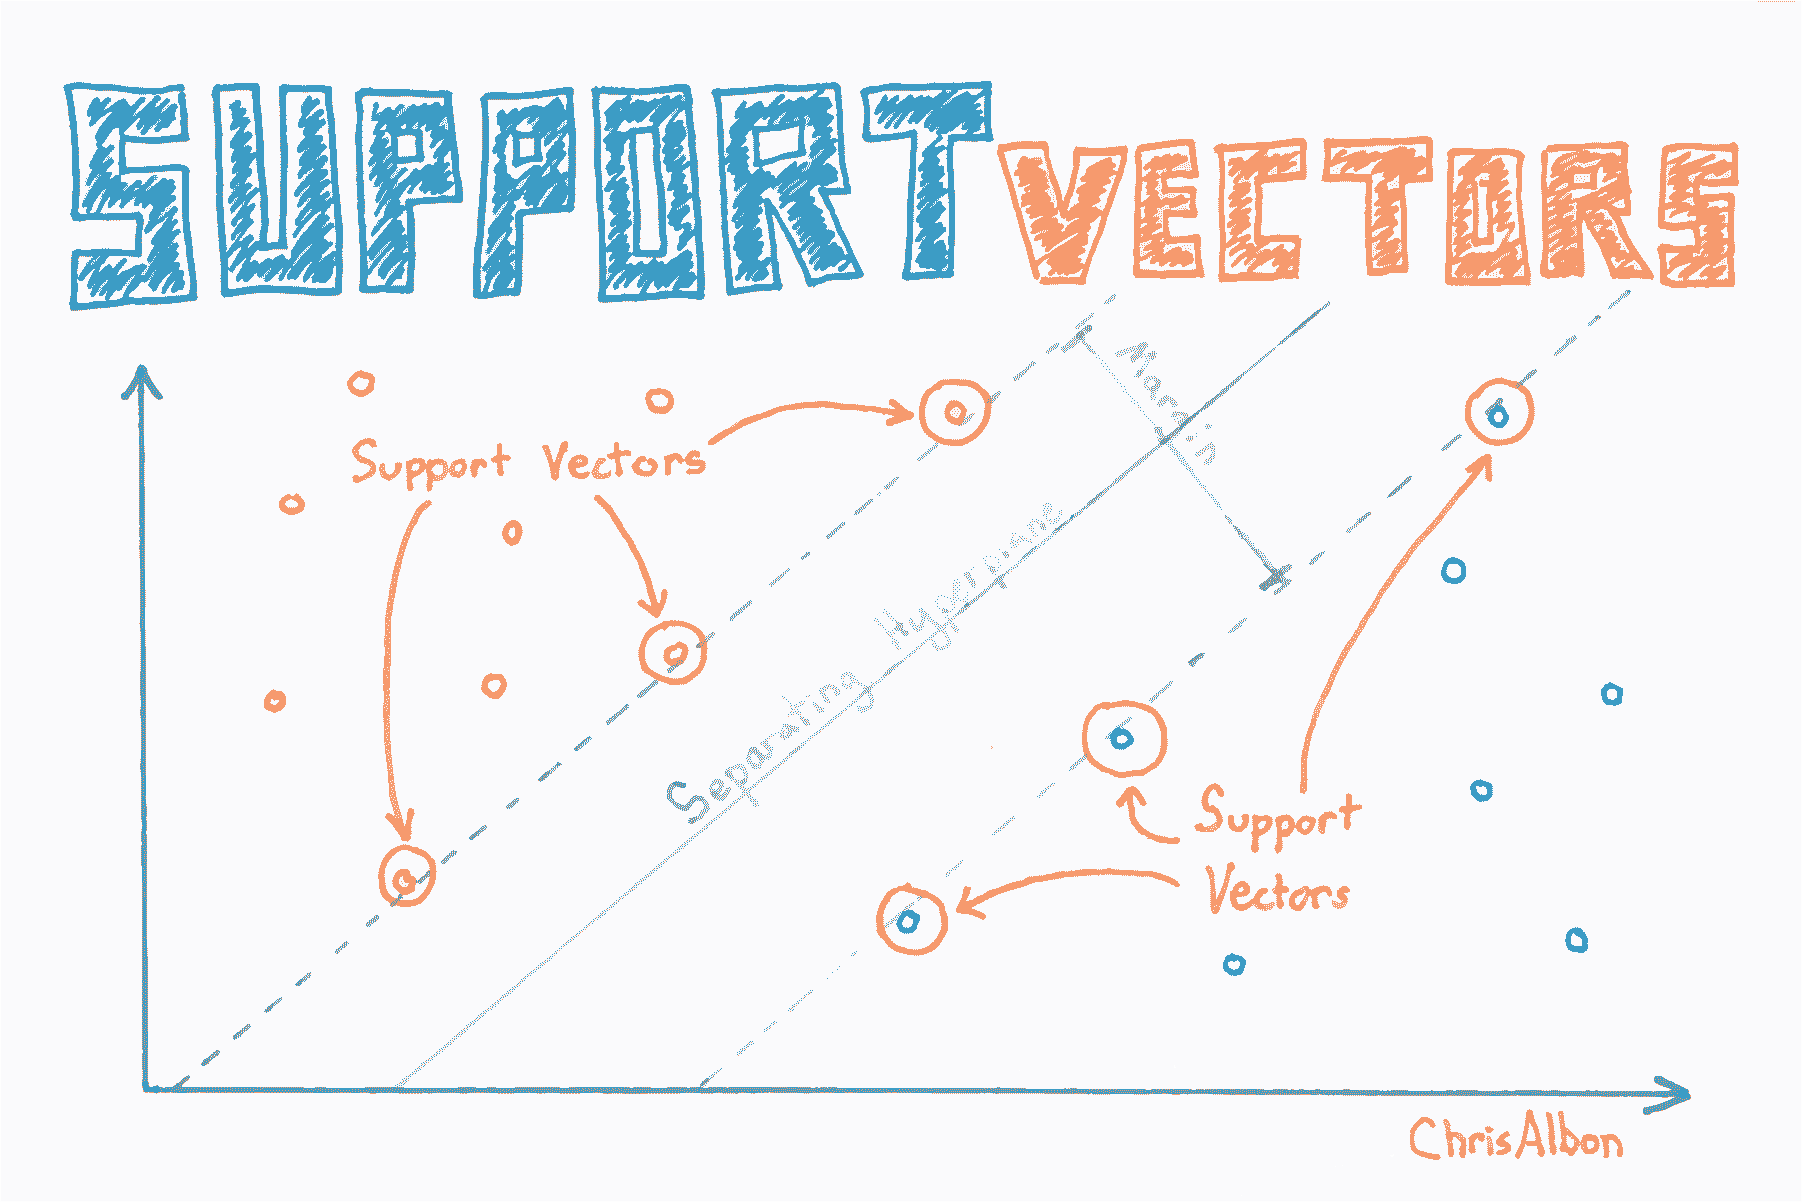 SUPPORT VECTORS
Margin
Support Vectors
Separating Hyperplane
Support
Vectors
ChrisAlbon